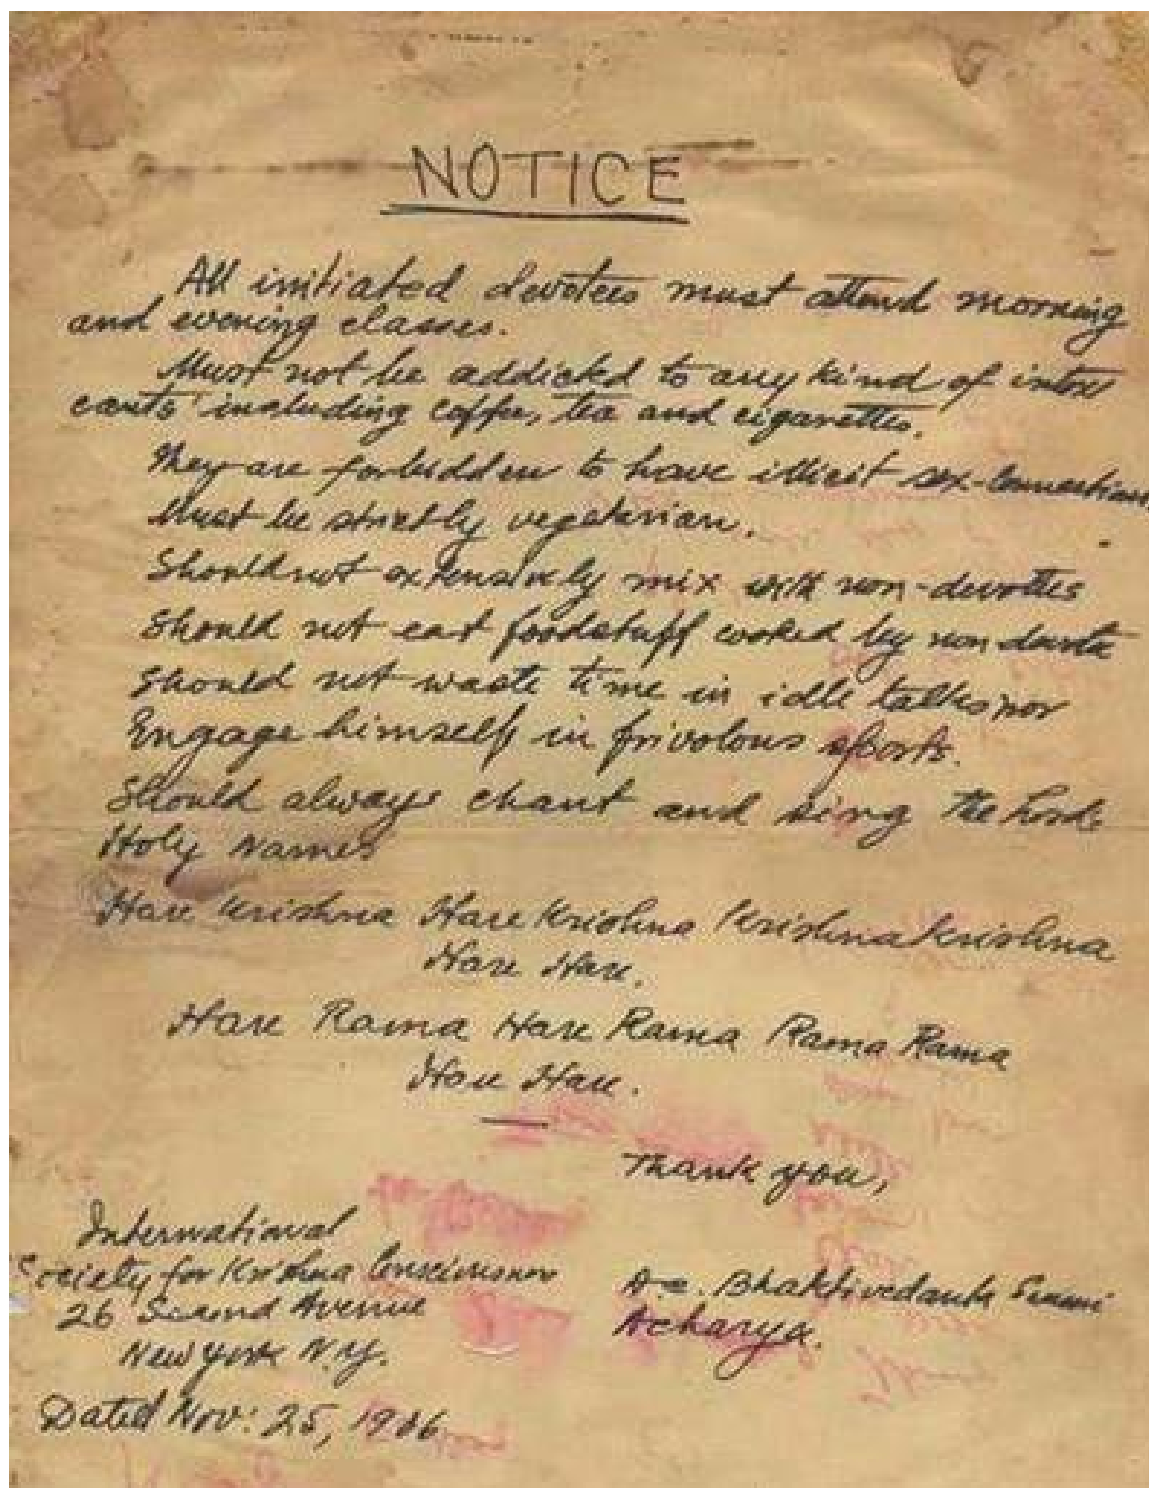 NOTICE
All initiated devotees must attend morning
and evening classes.
Must not be addicted to any kind of intoxi
cants including coffee, tea and cigarettes.
They are forbidden to have illicit sex-connections.
Must be strictly vegetarian.
Should not extensively mix with non-devotees
Should not eat foodstuff cooked by non devotee
Should not waste time in idle talks nor
Engage himself in frivolous sports.
Should always chant and sing the Lord's
Holy Names
Hare Krishna Hare Krishna Krishna Krishna
Hare Hare.
Hare Rama Hare Rama Rama Rama
Hare Hare.
Thank you,
International
Society for Krishna Consciousness
26 Second Avenue
New York N.Y.
Dated Nov: 25, 1966
A.C. Bhaktivedanta Swami
Acharya.